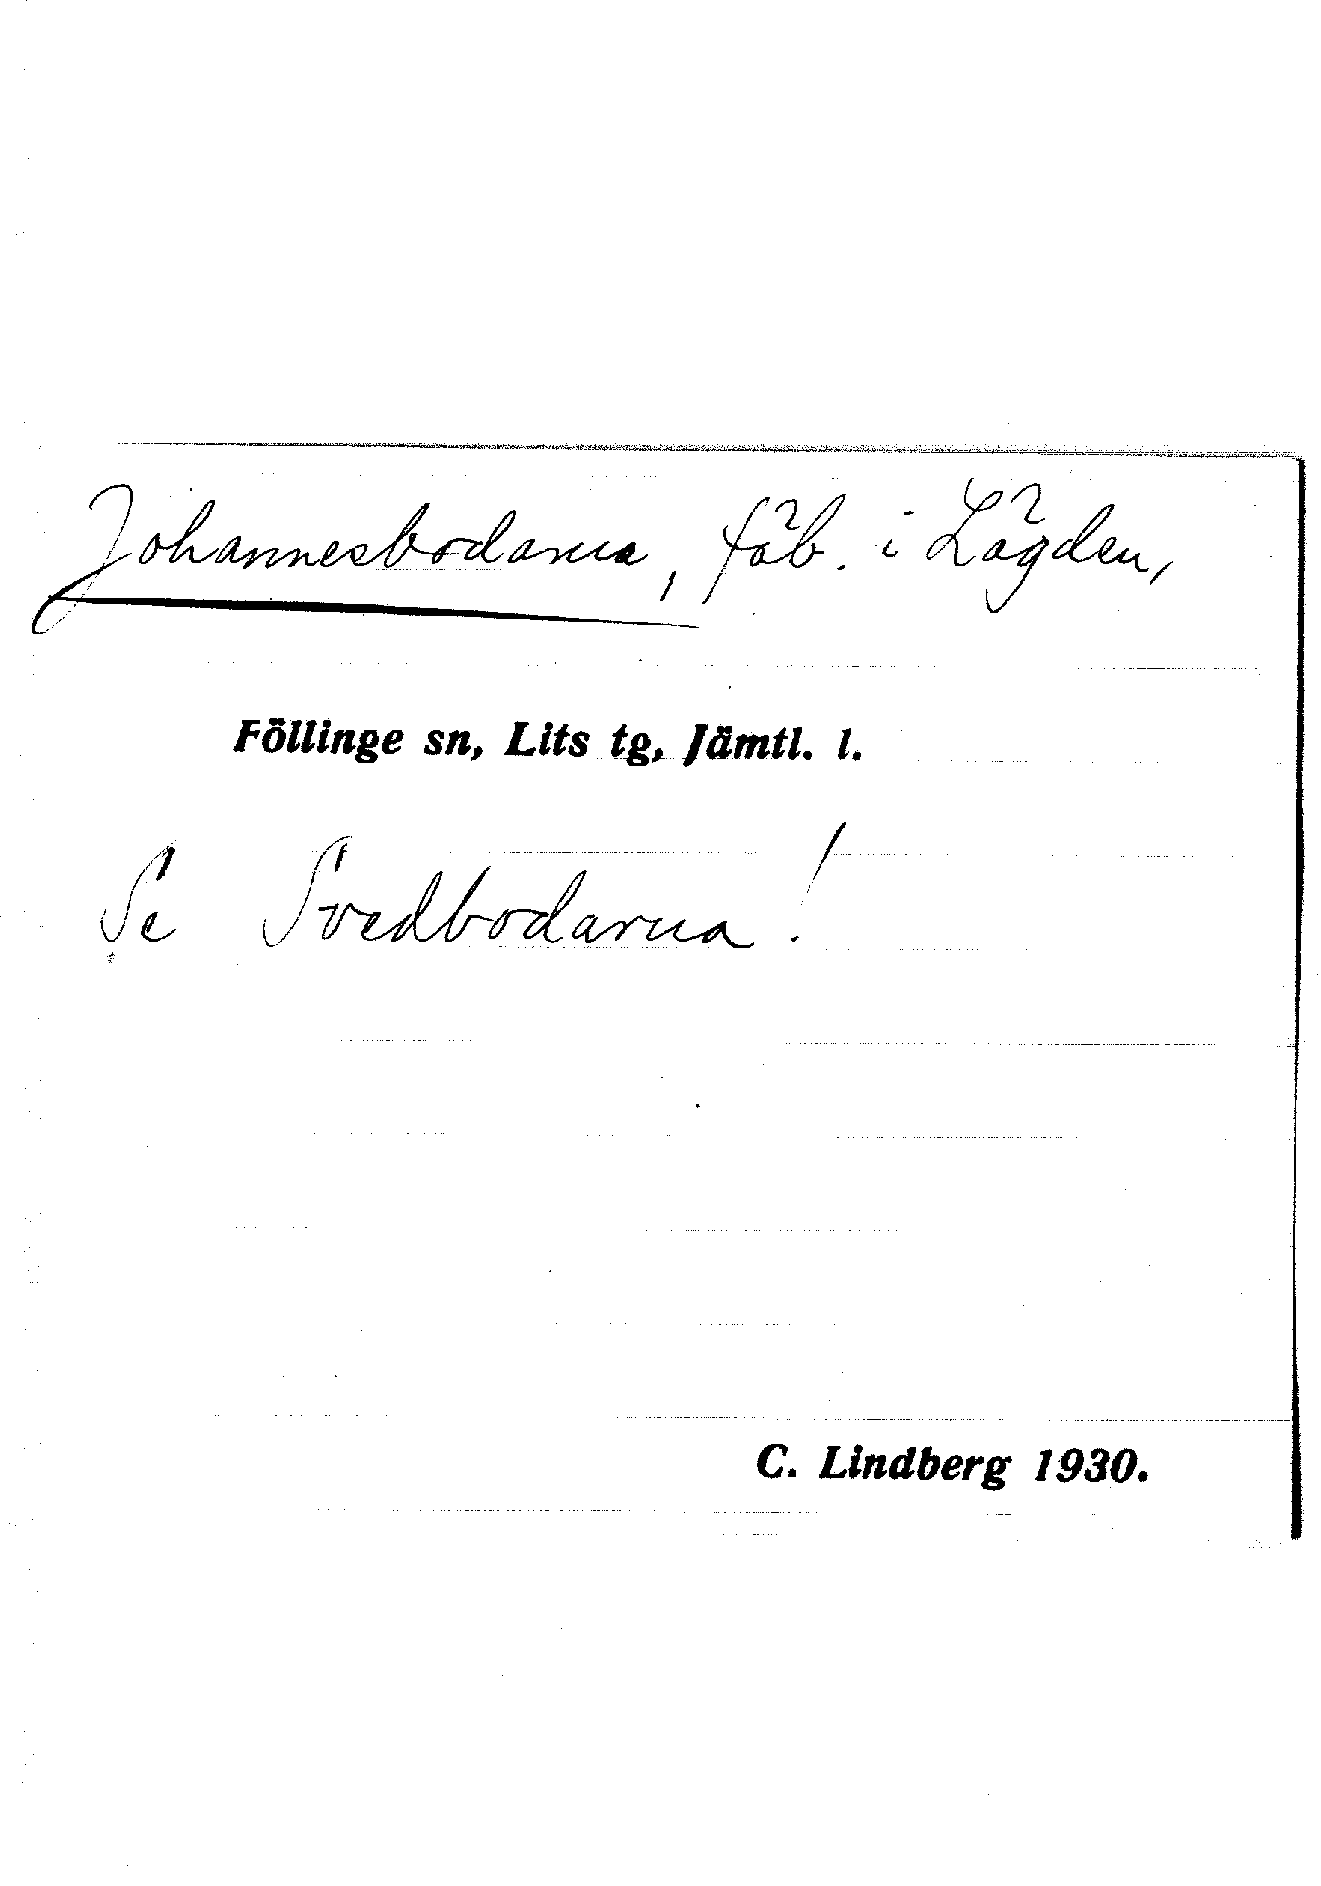 Johannesbodarna, fäb. i Lägden,
Föllinge sn, Lits tg, Jämtl. l.
Se Svedbodarna!
C. Lindberg 1930.